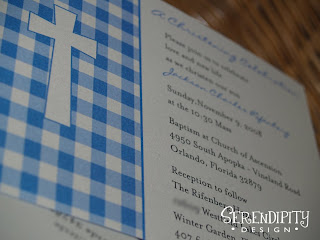 A Christening Celebration
Please join us to celebrate
love and new life
as we christen our son
Jackson Charles Rifenberg
Sunday, November 9, 2008
at the 10:30 Mass
Baptism at Church of Ascension
4950 South Apopka - Vineland Road
Orlando, Florida 32819
Reception to follow
The Rifenber
West
Winter Garden,
SERENDIPITY
DESIGN